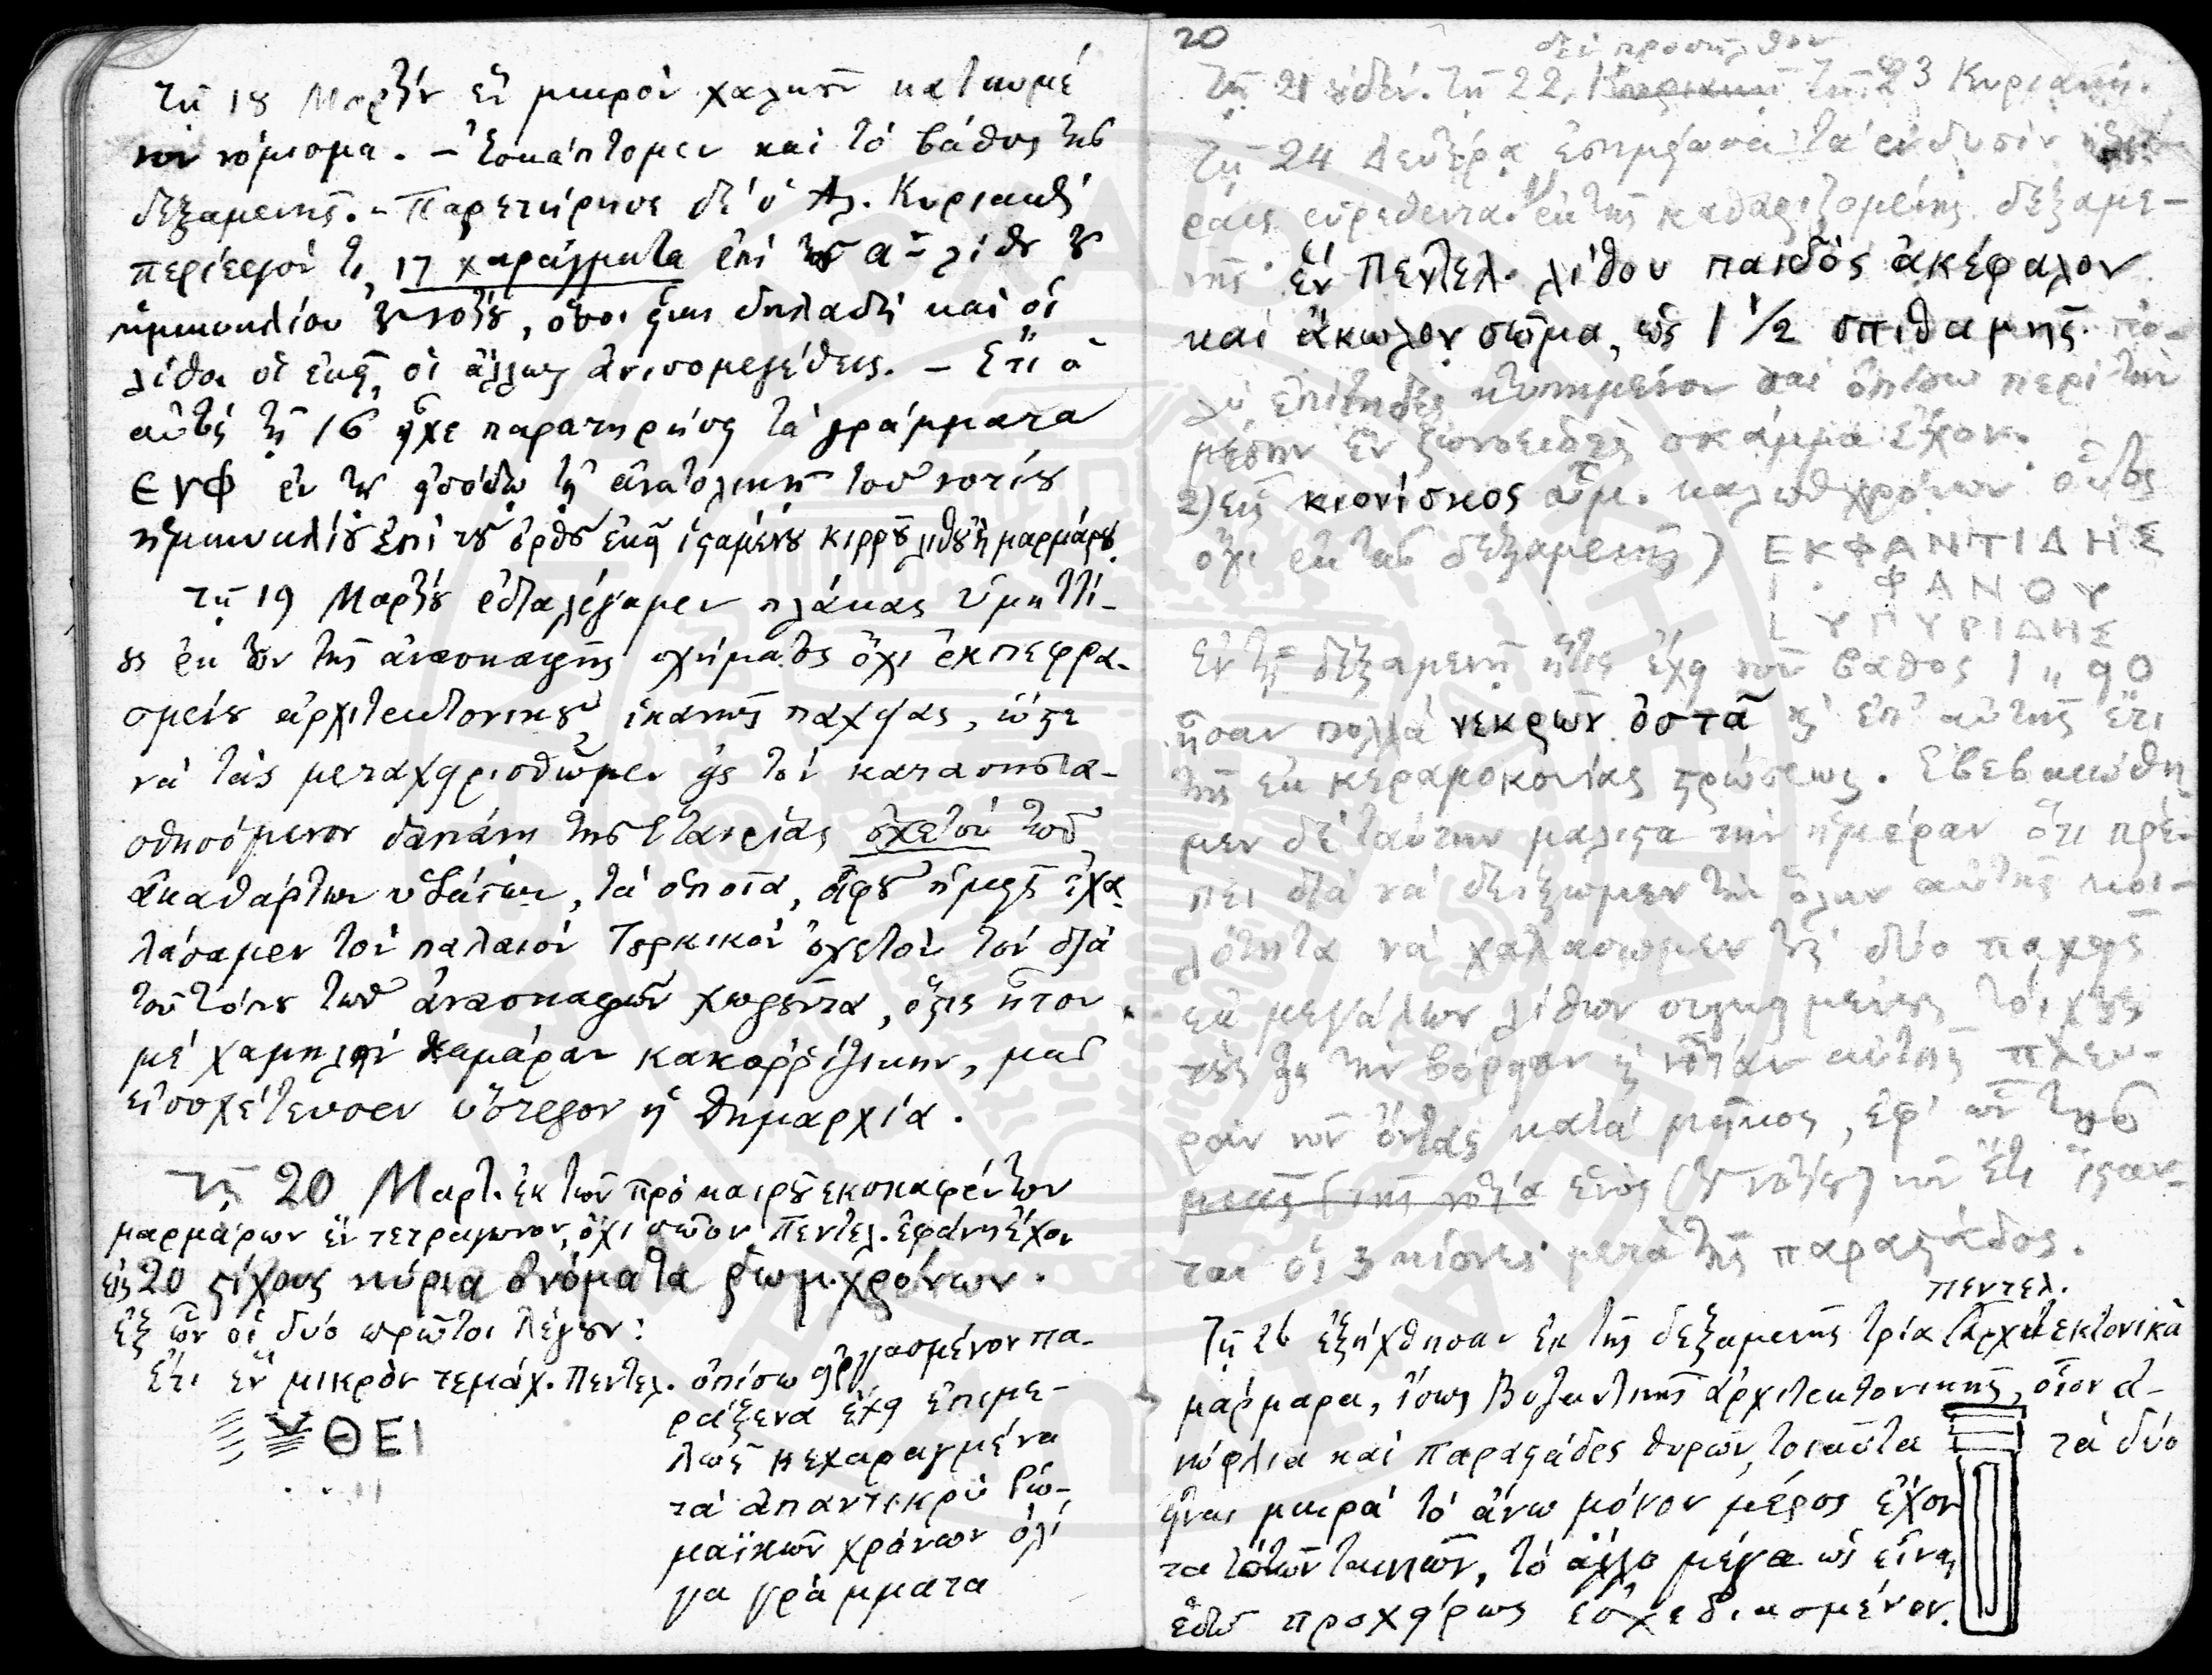 τῇ 18 Μαρτίου ἓν μικρὸν χαλκοῦν κατιωμέ
νον νόμισμα. – Ἐσκάπτομεν καὶ τὸ βάθος τῆς
δεξαμενῆς. – Παρετήρησε δὲ ὁ Ἀθ. Κυριακὸς
περίεργόν τι, 17 χαράγματα ἐπὶ τοῦ α- λίθου τοῦ
ἡμικυκλίου τοῦ νοτίου, ὅσοι εἶναι δηλαδὴ καὶ οἱ
λίθοι οἱ ἐκεῖ, οἱ ἄλλως ἀνισομεγέθεις. – Ἔτι ὁ
αὐτὸς τῇ 16 εἶχε παρατηρήσῃ τὰ γράμματα
ΕΥΦ ἐν τῇ εἰσόδῳ τῇ ἀνατολικῇ τοῦ νοτίου
ἡμικυκλίου ἐπὶ τοῦ ὀρθοῦ ἐκεῖ ἱσταμένου κιρροῦ λίθου ἢ μαρμάρου.
τῇ 19 Μαρτίου ἐδιαλέγαμεν πλάκας ὑμηττί-
ους ἐκ τῶν τῆς ἀνασκαφῆς σχήματος ὄχι ἐκπεφρα-
σμένου ἀρχιτεκτονικοῦ, ἱκανῶς παχείας, ὥστε
νὰ τὰς μεταχειρισθῶμεν εἰς τὸν κατασκευα-
σθησόμενον δαπάνῃ τῆς Ἑταιρίας ὀχετὸν τῶν
ἀκαθάρτων ὑδάτων, τὰ ὁποῖα, ἀφοῦ ἡμεῖς ἐχα-
λάσαμεν τὸν παλαιὸν Τουρκικὸν ὀχετὸν τὸν διὰ
τοῦ τόπου τῶν ἀνασκαφῶν χωροῦντα, ὅστις ἦτον
μὲ χαμηλὴν καμάραν κακορρίζικην, μᾶς
εἰσοχέτευσεν ὕστερον ἡ δημαρχία.
Τῇ 20 Μαρτ. ἐκ τῶν πρὸ καιροῦ ἐκσκαφέντων
μαρμάρων ἓν τετράγωνον, ὄχι σῶον Πεντελ. ἐφάνη ἔχον
εἰς 20 στίχους κύρια ὀνόματα ῥωμ. χρόνων.
ἐξ ὧν οἱ δύο πρῶτοι λέγουν:
Ἔτι ἓν μικρὸν τεμάχ. Πεντελ. ὀπίσω εἰργασμένον πα-
ράξενα ἔχει ἐπιμε-
λῶς κεχαραγμένα
τὰ ἀπαντικρὺ Ῥω-
μαϊκῶν χρόνων ὀλί
γα γράμματα
ΥΘΕΙ
20
δὲν προσῆλθον
Τῇ 21 οὐδέν. Τῇ 22, Κυριακῇ τῇ 23 Κυριακῇ.
Τῇ 24 Δευτέρᾳ ἐσημείωσα τὰ ἐν δυσὶν ἡμέ-
ραις εὑρεθέντα. 1) ἐκ τῆς καθαριζομένης δεξαμε-
νῆς ἓν Πεντελ. λίθου παιδὸς ἀκέφαλον
καὶ ἄκωλον σῶμα, ὡς 1 1/2 σπιθαμῆς πο-
λὺ ἐπίτηδες κτυπημένον καὶ ὀπίσω περὶ τὴν
μέσην ἓν ζωνοειδὲς σκάμμα ἔχον.
2) εἷς κιονίσκος ὑμ. καλῶν χρόνων οὗτος
ὄχι ἐκ τῆς δεξαμενῆς) ΕΚΦΑΝΤΙΔΗΣ
Ι . ΦΑΝΟΥ
ΛΥΠΥΡΙΔΗΣ
Ἐν τῇ δεξαμενῇ ἥτις ἔχει νῦν βάθος 1,, 90
ἦσαν πολλὰ νεκρῶν ὀστᾶ καὶ ἐπ' αὐτῆς ἔτι
τῆς ἐκ κεραμοκονίας στρώσεως. Ἐβεβαιώθη
μεν δὲ ταύτην μάλιστα τὴν ἡμέραν ὅτι πρέ-
πει διὰ νὰ δείξωμεν τὴν ὅλην αὐτῆς κοι-
λότητα νὰ χαλάσωμεν τοὺς δύο παχεῖς
ἐκ μεγάλων λίθων συγκειμένους τοίχους
τοὺς εἰς τὴν βόρειαν καὶ νοτίαν αὐτῆς πλευ-
ρὰν νῦν ὄντας κατὰ μῆκος, ἐφ' ὧν τῆς
μιᾶς (τῆς νοτία ἑνὸς (τοῦ νοτίου) νῦν ἔτι ἵσταν-
ται οἱ 3 κίονες μετὰ τῆς παραστάδος.
πεντελ.
Τῇ 26 ἐξήχθησαν ἐκ τῆς δεξαμενῆς τρία ἀρχιτεκτονικὰ
μάρμαρα, ἴσως Βυζαντινῆς ἀρχιτεκτονικῆς, οἷον ἀ-
νώφλια καὶ παραστάδες θυρῶν, τοιαῦτα τὰ δύο
εἶναι μικρὰ τὸ ἄνω μόνον μέρος ἔχον
τα τῶν ταινιῶν, τὸ ἄλλο μέγα ὡς εἶναι
ἐδῶ προχείρως ἐσχεδιασμένον.